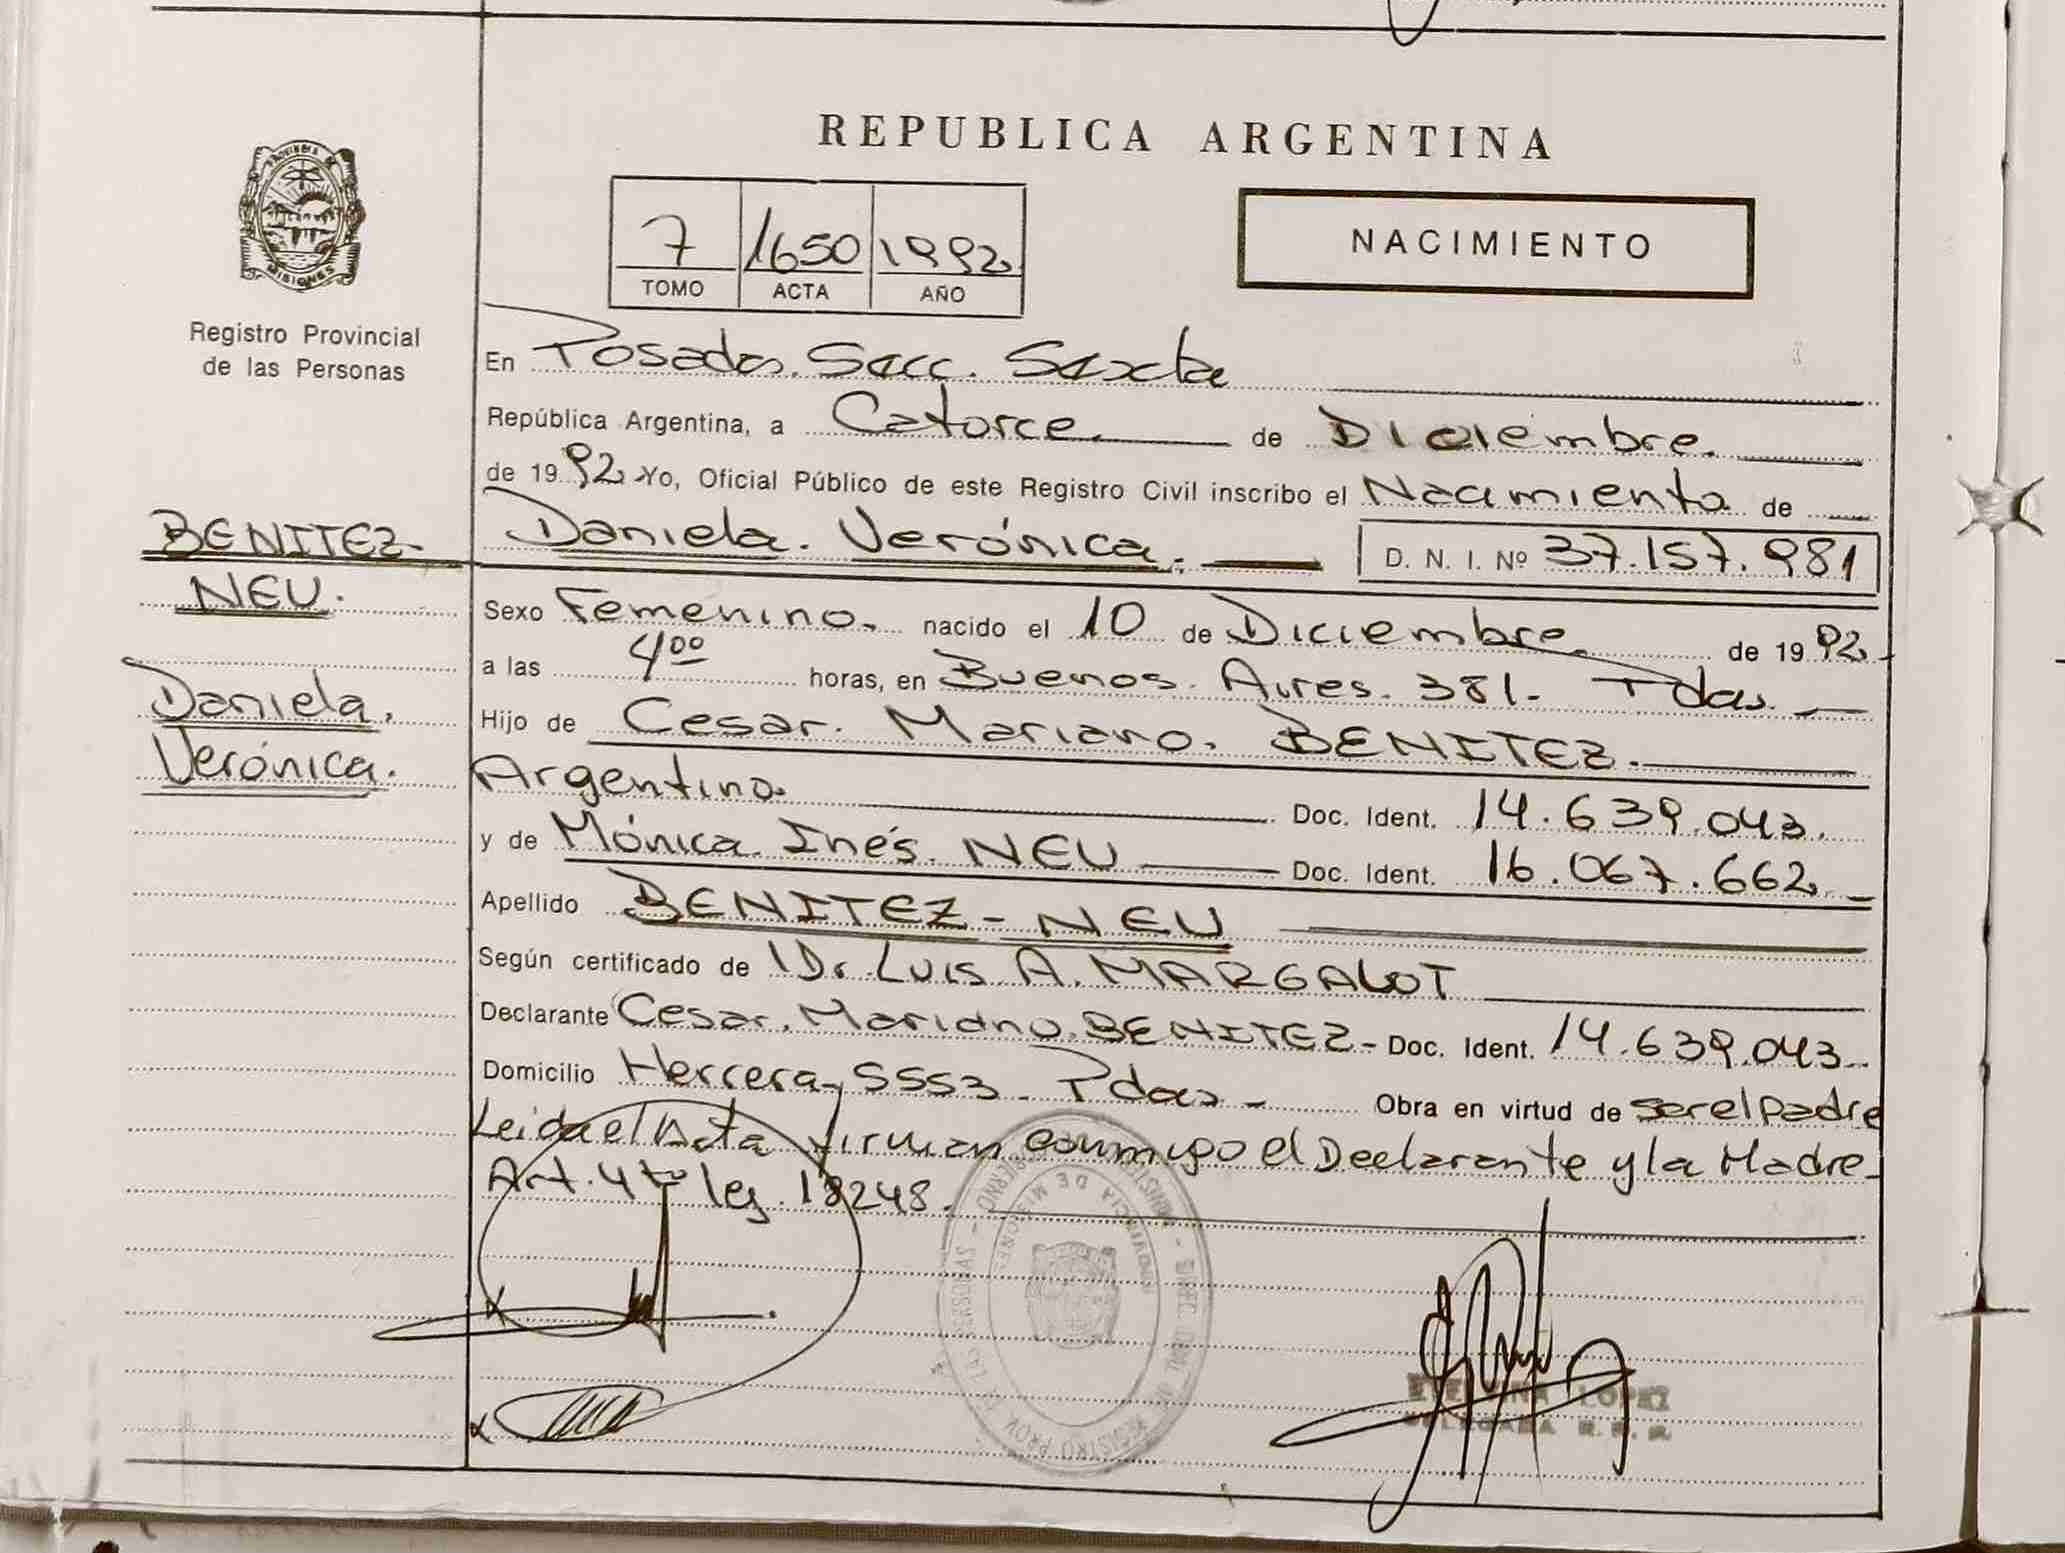 REPUBLICA ARGENTINA
PROVINCIA DE
MISIONES
Registro Provincial
de las Personas
7 1650 1992
TOMO ACTA AÑO
NACIMIENTO
En Posadas. Secc. Sexta
República Argentina, a Catorce. de Diciembre.
de 1992 Yo, Oficial Público de este Registro Civil inscribo el Nacimiento de
BENITEZ-
NEU.
Daniela.
Verónica.
Daniela. Verónica. D. N. I. Nº 37.157.981
Sexo Femenino. nacido el 10 de Diciembre. de 1992
a las 4⁰⁰ horas, en Buenos. Aires. 381- Pdas.
Hijo de Cesar. Mariano. BENITEZ.
Argentino. Doc. Ident. 14.639.043.
y de Mónica. Inés. NEU Doc. Ident. 16.067.662.
Apellido BENITEZ - NEU
Según certificado de Dr. LUIS A. MARGALOT
Declarante Cesar. Mariano. BENITEZ- Doc. Ident. 14.639.043-
Domicilio Herrera, 5553 - Pdas - Obra en virtud de ser el padre
Leida el Acta firman conmigo el Declarante y la Madre-
Art. 4to ley. 18248.
PROVINCIA DE MISIONES
LOPEZ